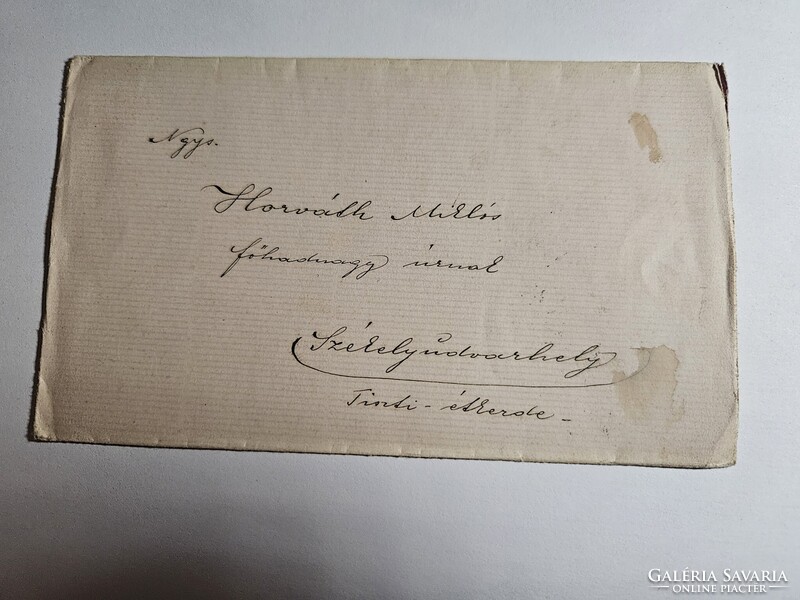 Ngys.
Horváth Miklós
főhadnagy úrnak
Székelyudvarhely
Tiszti - étkezde -
GALÉRIA SAVARIA
ONLINE PIACTÉR